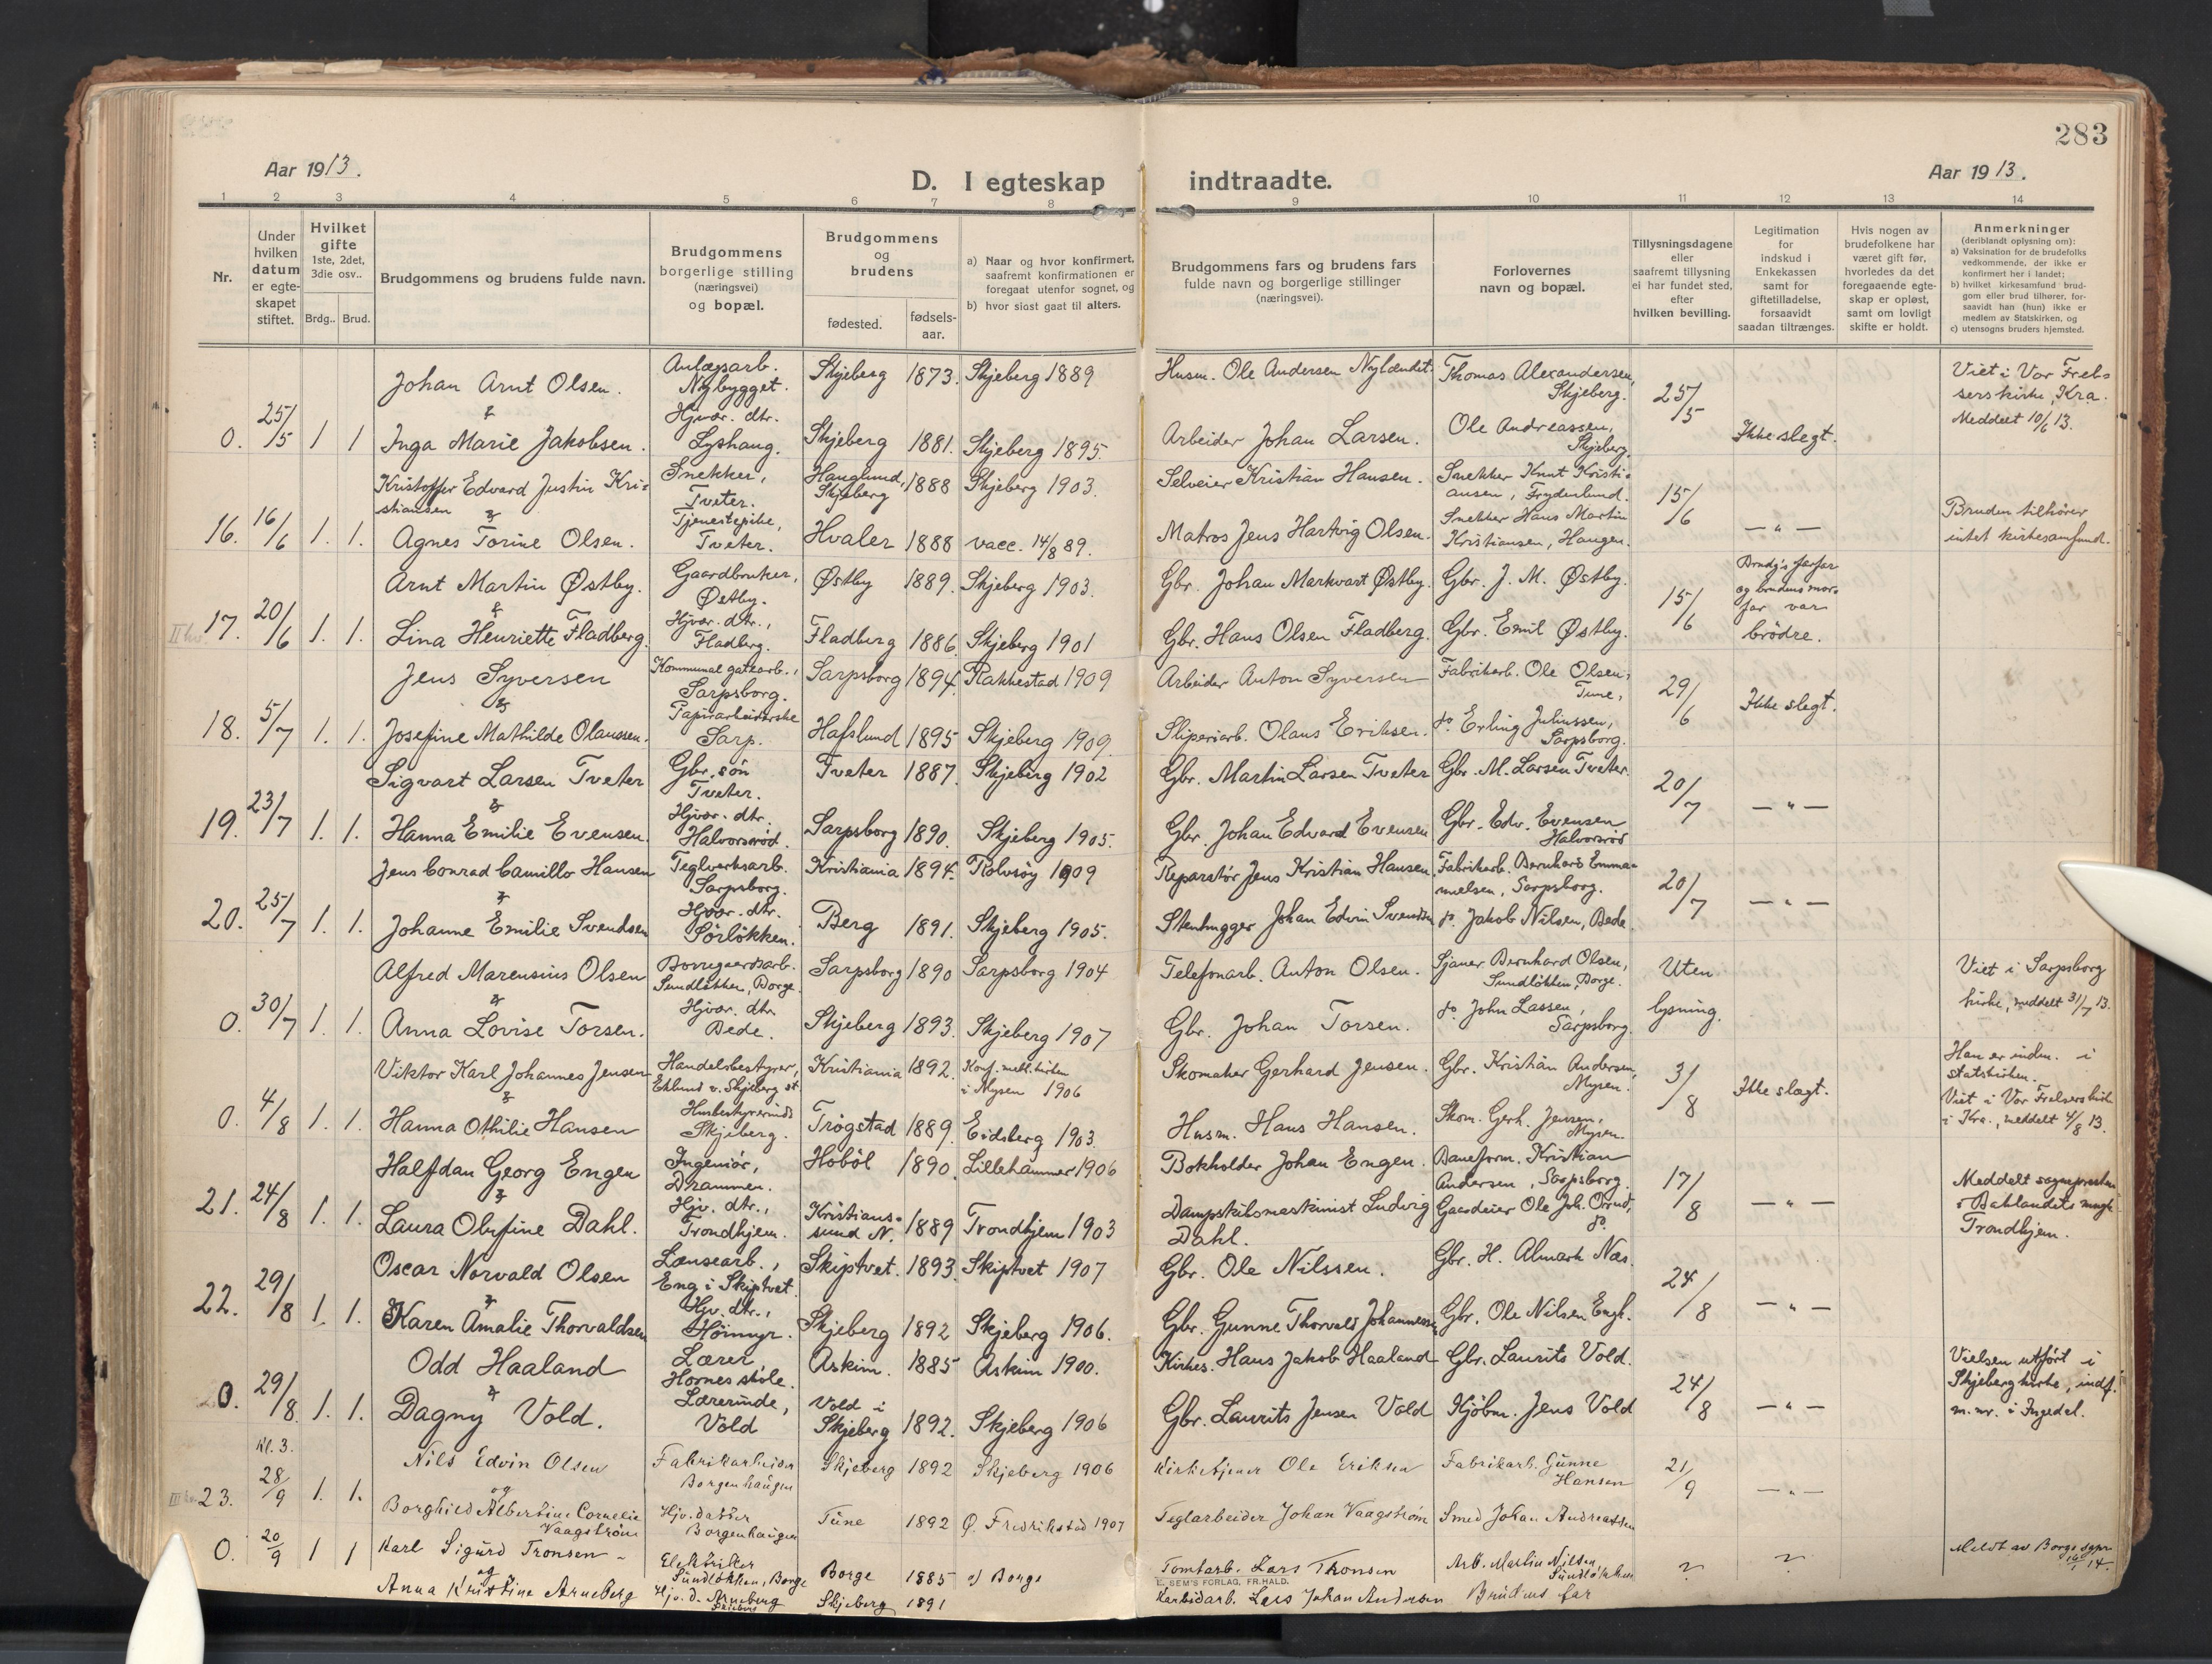 283
Aar 1913.
D. I egteskap indtraadte.
Aar 1913.
1 2 3 4 5 6 7 8 9 10 11 12 13 14
Nr.
Under hvilken datum er egte-skapet stiftet.
Hvilket gifte 1ste, 2det, 3die osv..
Brdg.. Brud.
Brudgommens og brudens fulde navn.
Brudgommens borgerlige stilling (næringsvei) og bopæl.
Brudgommens og brudens
fødested.
fødsels-aar.
a) Naar og hvor konfirmert, saafremt konfirmationen er foregaat utenfor sognet, og
b) hvor sidst gaat til alters.
Brudgommens fars og brudens fars fulde navn og borgerlige stillinger (næringsvei).
Forlovernes navn og bopæl.
Tillysningsdagene eller saafremt tillysning ei har fundet sted, efter hvilken bevilling.
Legitimation for indskud i Enkekassen samt for giftetilladelse, forsaavidt saadan tiltrænges.
Hvis nogen av brudefolkene har været gift før, hvorledes da det foregaaende egte-skap er opløst, samt om lovligt skifte er holdt.
Anmerkninger (deriblandt oplysning om):
a) Vaksination for de brudefolks vedkommende, der ikke er konfirmert her i landet;
b) hvilket kirkesamfund brud-gom eller brud tilhører, for-saavidt han (hun) ikke er medlem av Statskirken, og
c) utensogns bruders hjemsted.
Johan Arnt Olsen. Anlægsarb. Nybygget. Skjeberg 1873. Skjeberg 1889 Husm. Ole Andersen Nylændet. Thomas Alexandersen, Skjeberg. 25/5 Viet i Vor Frel-serskirke, Kra. Meddelt 10/6 13.
0. 25/5 1 1 & Inga Marie Jakobsen. Hjvær. dtr. Lyshaug. Skjeberg 1881. Skjeberg 1895. Arbeider Johan Larsen. Ole Andreassen, Skjeberg. Ikke slegt.
Kristoffer Edvard Justin Kri-stiansen Snekker, Tveter. Hauglund, Skjeberg 1888 Skjeberg 1903. Selveier Kristian Hansen. Snekker Knut Kristi-ansen, Frydenlund. 15/6 Bruden tilhører intet kirkesamfund.
16. 16/6 1. 1. & Agnes Torine Olsen. Tjenestepike, Tveter. Hvaler 1888 vacc. 14/8 89. Matros Jens Hartvig Olsen. Snekker Hans Martin Kristiansen, Haugen. — " —
Arnt Martin Østby. Gaardbruker, Østby. Østby 1889. Skjeberg 1903. Gbr. Johan Markvart Østby. Gbr. J. M. Østby. 15/6 Brudg's farfar og brudens mor-far var brödre.
II kv. 17. 20/6 1. 1. & Lina Henriette Fladberg. Hjvær. dtr., Fladberg. Fladberg 1886. Skjeberg 1901 Gbr. Hans Olsen Fladberg. Gbr. Emil Østby.
Jens Syversen Kommunal gatearb., Sarpsborg. Sarpsborg 1894. Rakkestad 1909 Arbeider Anton Syversen Fabrikarb. Ole Olsen, Tune, 29/6 Ikke slegt.
18. 5/7 1. 1. & Josefine Mathilde Olaussen. Papirarbeiderske Sarp. Hafslund 1895 Skjeberg 1909. Sliperiarb. Olaus Eriksen. do. Erling Juliussen, Sarpsborg.
Sigvart Larsen Tveter Gbr. søn Tveter. Tveter 1887. Skjeberg 1902 Gbr. Martin Larsen Tveter Gbr. M. Larsen Tveter. 20/7 — " —
19. 23/7 1. 1. & Hanna Emilie Evensen. Hjvær. dtr. Halvorsrød. Sarpsborg 1890. Skjeberg 1905. Gbr. Johan Edvard Evensen Gbr. Edv. Evensen Halvorsrød
Jens Conrad Camillo Hansen Teglverksarb. Sarpsborg. Kristiania 1894. Rolvsøy 1909 Reparatör Jens Kristian Hansen Fabrikarb. Bernhard Emma-nuelsen, Sarpsborg. 20/7 — " —
20. 25/7 1. 1. & Johanne Emilie Svendsen Hjvær. dtr. Sörlökken. Berg 1891. Skjeberg 1905. Stenhugger Johan Edvin Svendsen do. Jakob Nilsen, Bede.
Alfred Marensius Olsen Borregaardsarb. Sundløkken, Borge. Sarpsborg 1890 Sarpsborg 1904 Telefonarb. Anton Olsen. Sjauer Bernhard Olsen, Sundlökken, Borge. Uten lysning. Viet i Sarpsborg kirke, meddelt 31/7 13.
0. 30/7 1. 1. & Anna Lovise Torsen. Hjvær. dtr. Bede. Skjeberg 1893. Skjeberg 1907 Gbr. Johan Torsen. do. John Lassen, Sarpsborg.
Viktor Karl Johannes Jensen Handelsbestyrer, Eklund v. Skjeberg st. Kristiania 1892. Konf. meth. kirken i Mysen 1906 Skomaker Gerhard Jensen. Gbr. Kristian Andersen, Mysen. 3/8 Ikke slægt. Han er indm. i statskirken. Viet i Vor Frelsers kirke i Kra., meddelt 4/8 13.
0. 4/8 1. 1. & Hanna Othilie Hansen Husbestyrerinde Skjeberg. Trøgstad 1889. Eidsberg 1903. Husm. Hans Hansen. Skom. Gerh. Jensen, Mysen.
Halfdan Georg Engen Ingeniör, Drammen. Hoböl 1890. Lillehammer 1906 Bokholder Johan Engen. Baneform. Kristian Andersen, Sarpsborg. 17/8 — " — Meddelt sognepresten i Baklandets mngh. Trondhjem.
21. 24/8 1. 1. & Laura Olufine Dahl. Hjv. dtr., Trondhjem. Kristians-sund N. 1889 Trondhjem 1903 Dampskibsmaskinist Ludvig Dahl. Gaardeier Ole Joh. Orrud, do.
Oscar Norvald Olsen Lænsearb., Eng i Skiptvet. Skiptvet. 1893. Skiptvet 1907 Gbr. Ole Nilssen. Gbr. H. Almark Næs. 24/8 — " —
22. 29/8 1. 1. & Karen Amalie Thorvaldsen Hjv. dtr., Höimyr. Skjeberg 1892 Skjeberg 1906. Gbr. Gunne Thorvald Johannessen Gbr. Ole Nilsen Engh.
Odd Haaland Lærer, Hornes skole. Askim. 1885 Askim 1900. Kirkes. Hans Jakob Haaland Gbr. Laurits Vold. 24/8 — " — Vielsen utført i Skjeberg kirke, indf. m. nr. i Ingedal.
0. 29/8 1. 1. & Dagny Vold. Lærerinde, Vold Vold i Skjeberg 1892. Skjeberg 1906 Gbr. Laurits Jensen Vold Kjöbm. Jens Vold
Kl. 3. Nils Edvin Olsen Fabrikarbeider Borgenhaugen Skjeberg 1892 Skjeberg 1906 Kirketjener Ole Eriksen Fabrikarb. Gunne Hansen 21/9 — " —
III kv. 23. 28/9 1. 1. og Borghild Albertine Cornelie Vaagstrøm Hjv. datter Borgenhaugen Tune 1892 Ø. Fredrikstad 1907 Teglarbeider Johan Vaagstrøm Smed Johan Andreassen
0. 20/9 1 1 Karl Sigurd Tronsen Elektriker Sundløkken, Borge Borge 1885 a) Borge Tomtarb. Lars Tronsen Arb. Martin Nilsen, Sundløkken ? ? Meldt av Borge sgpr. 14.
og Anna Kristine Arneberg Hjv. d. Arneberg Skjeberg Skjeberg 1891 Karbidarb. Lars Johan Andersen Brudens far
E. SEM'S FORLAG, FR.HALD.